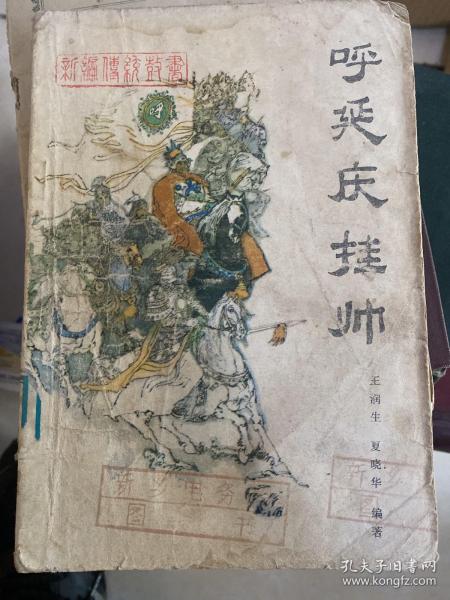 新编傳统鼓書
呼
呼延庆挂帅
王润生 夏晓华 编著
图 书
孔夫子旧书网
www.kongfz.com